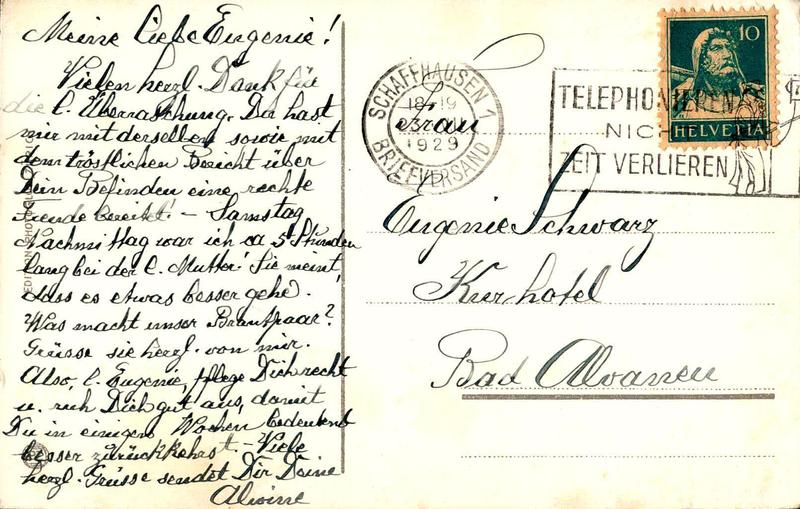 Meine liebe Eugenie!
Vielen herzl. Dank für
die l. Überraschung. Du hast
mir mit derselben sowie mit
dem tröstlichen Bericht über
Dein Befinden eine rechte
Freude bereitet! – Samstag
Nachmittag war ich ca 5 Stunden
lang bei der l. Mutter! Sie meint,
dass es etwas besser gehe.
Was macht unser Brautpaar?
Grüsse sie herzl. von mir.
Also, l. Eugenie, pflege Dich recht
u. ruh Dich gut aus, damit
Du in einigen Wochen bedeutend
besser zurückkehrst. – Viele
herzl. Grüsse sendet Dir Deine
Alwine
SCHAFFHAUSEN 1
1929
BRIEFVERSAND
TELEPHONIEREN
NICHT
ZEIT VERLIEREN
10
HELVETIA
Frau
Eugenie Schwarz
Kurhotel
Bad Alvaneu